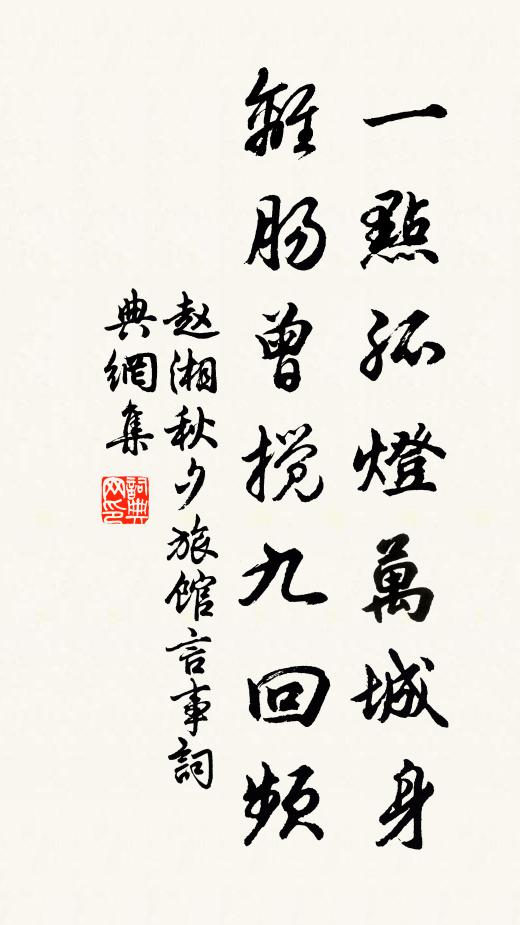 一點孤燈萬城身
離肠曾搅九回频
赵湘秋夕旅馆言事詞
典網集
詞典网印